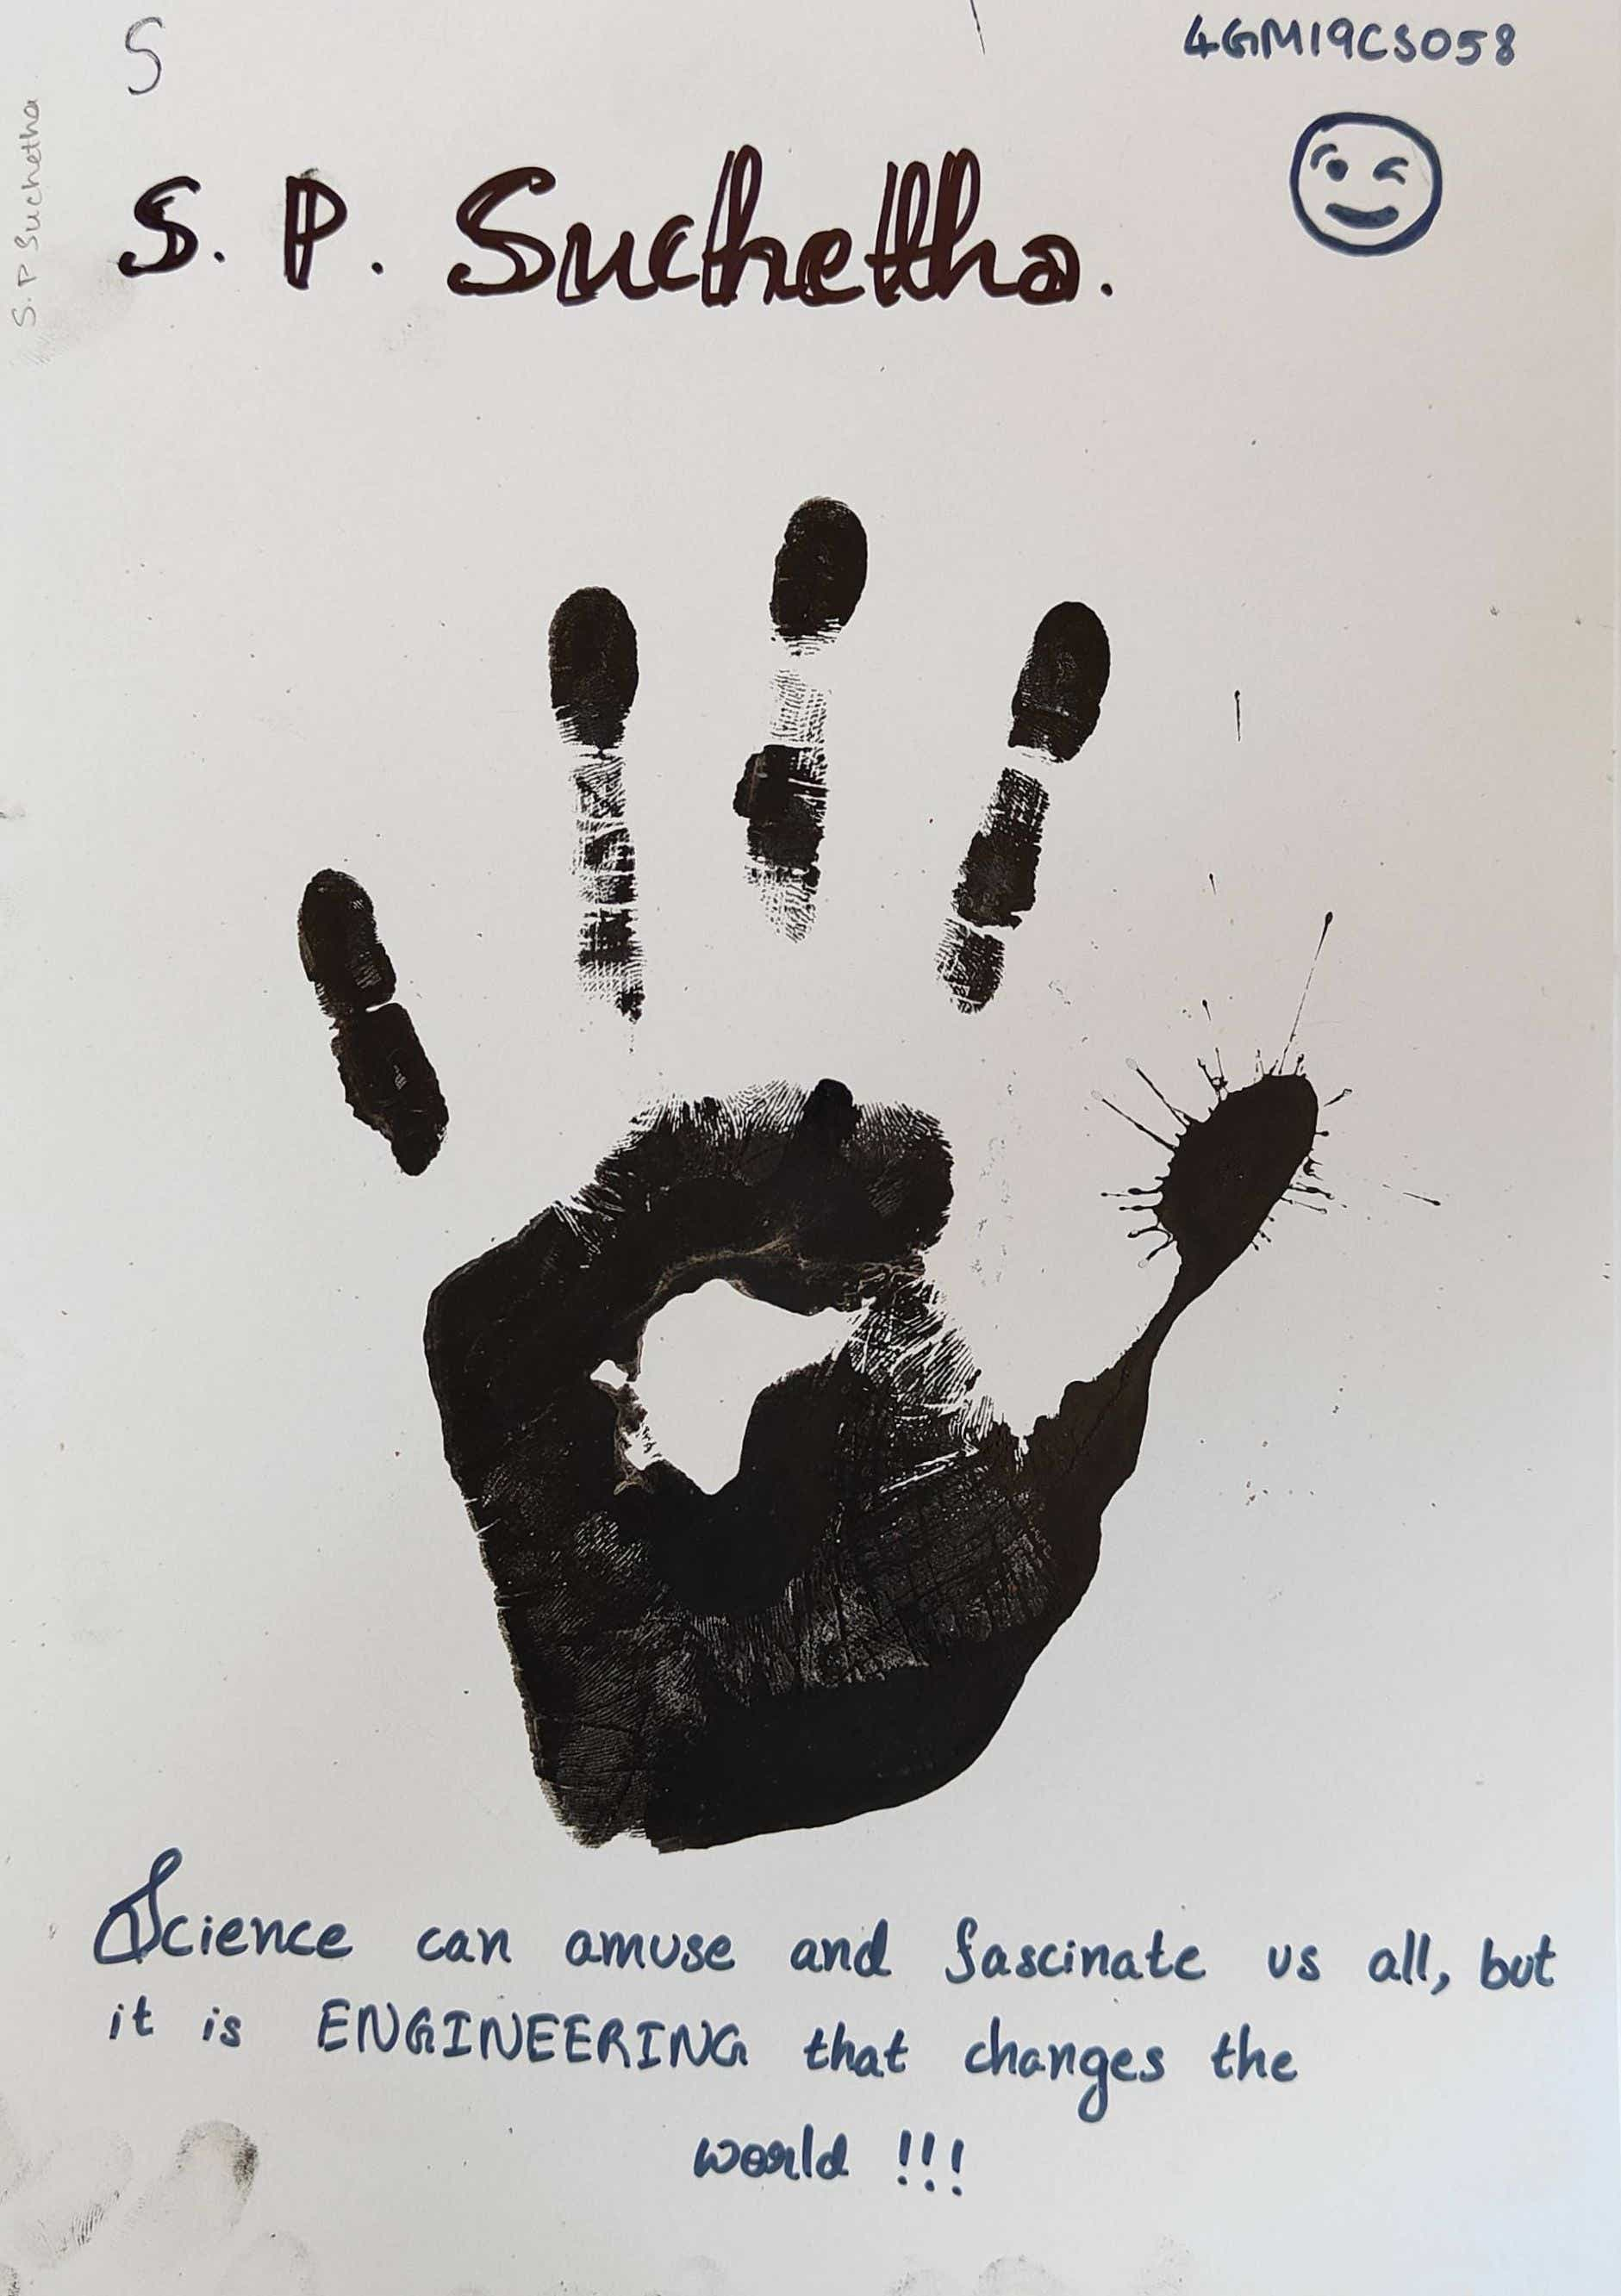 S
4GM19CS058
S. P Suchetha
S. P. Suchetha.
Science can amuse and fascinate us all, but
it is ENGINEERING that changes the
world !!!